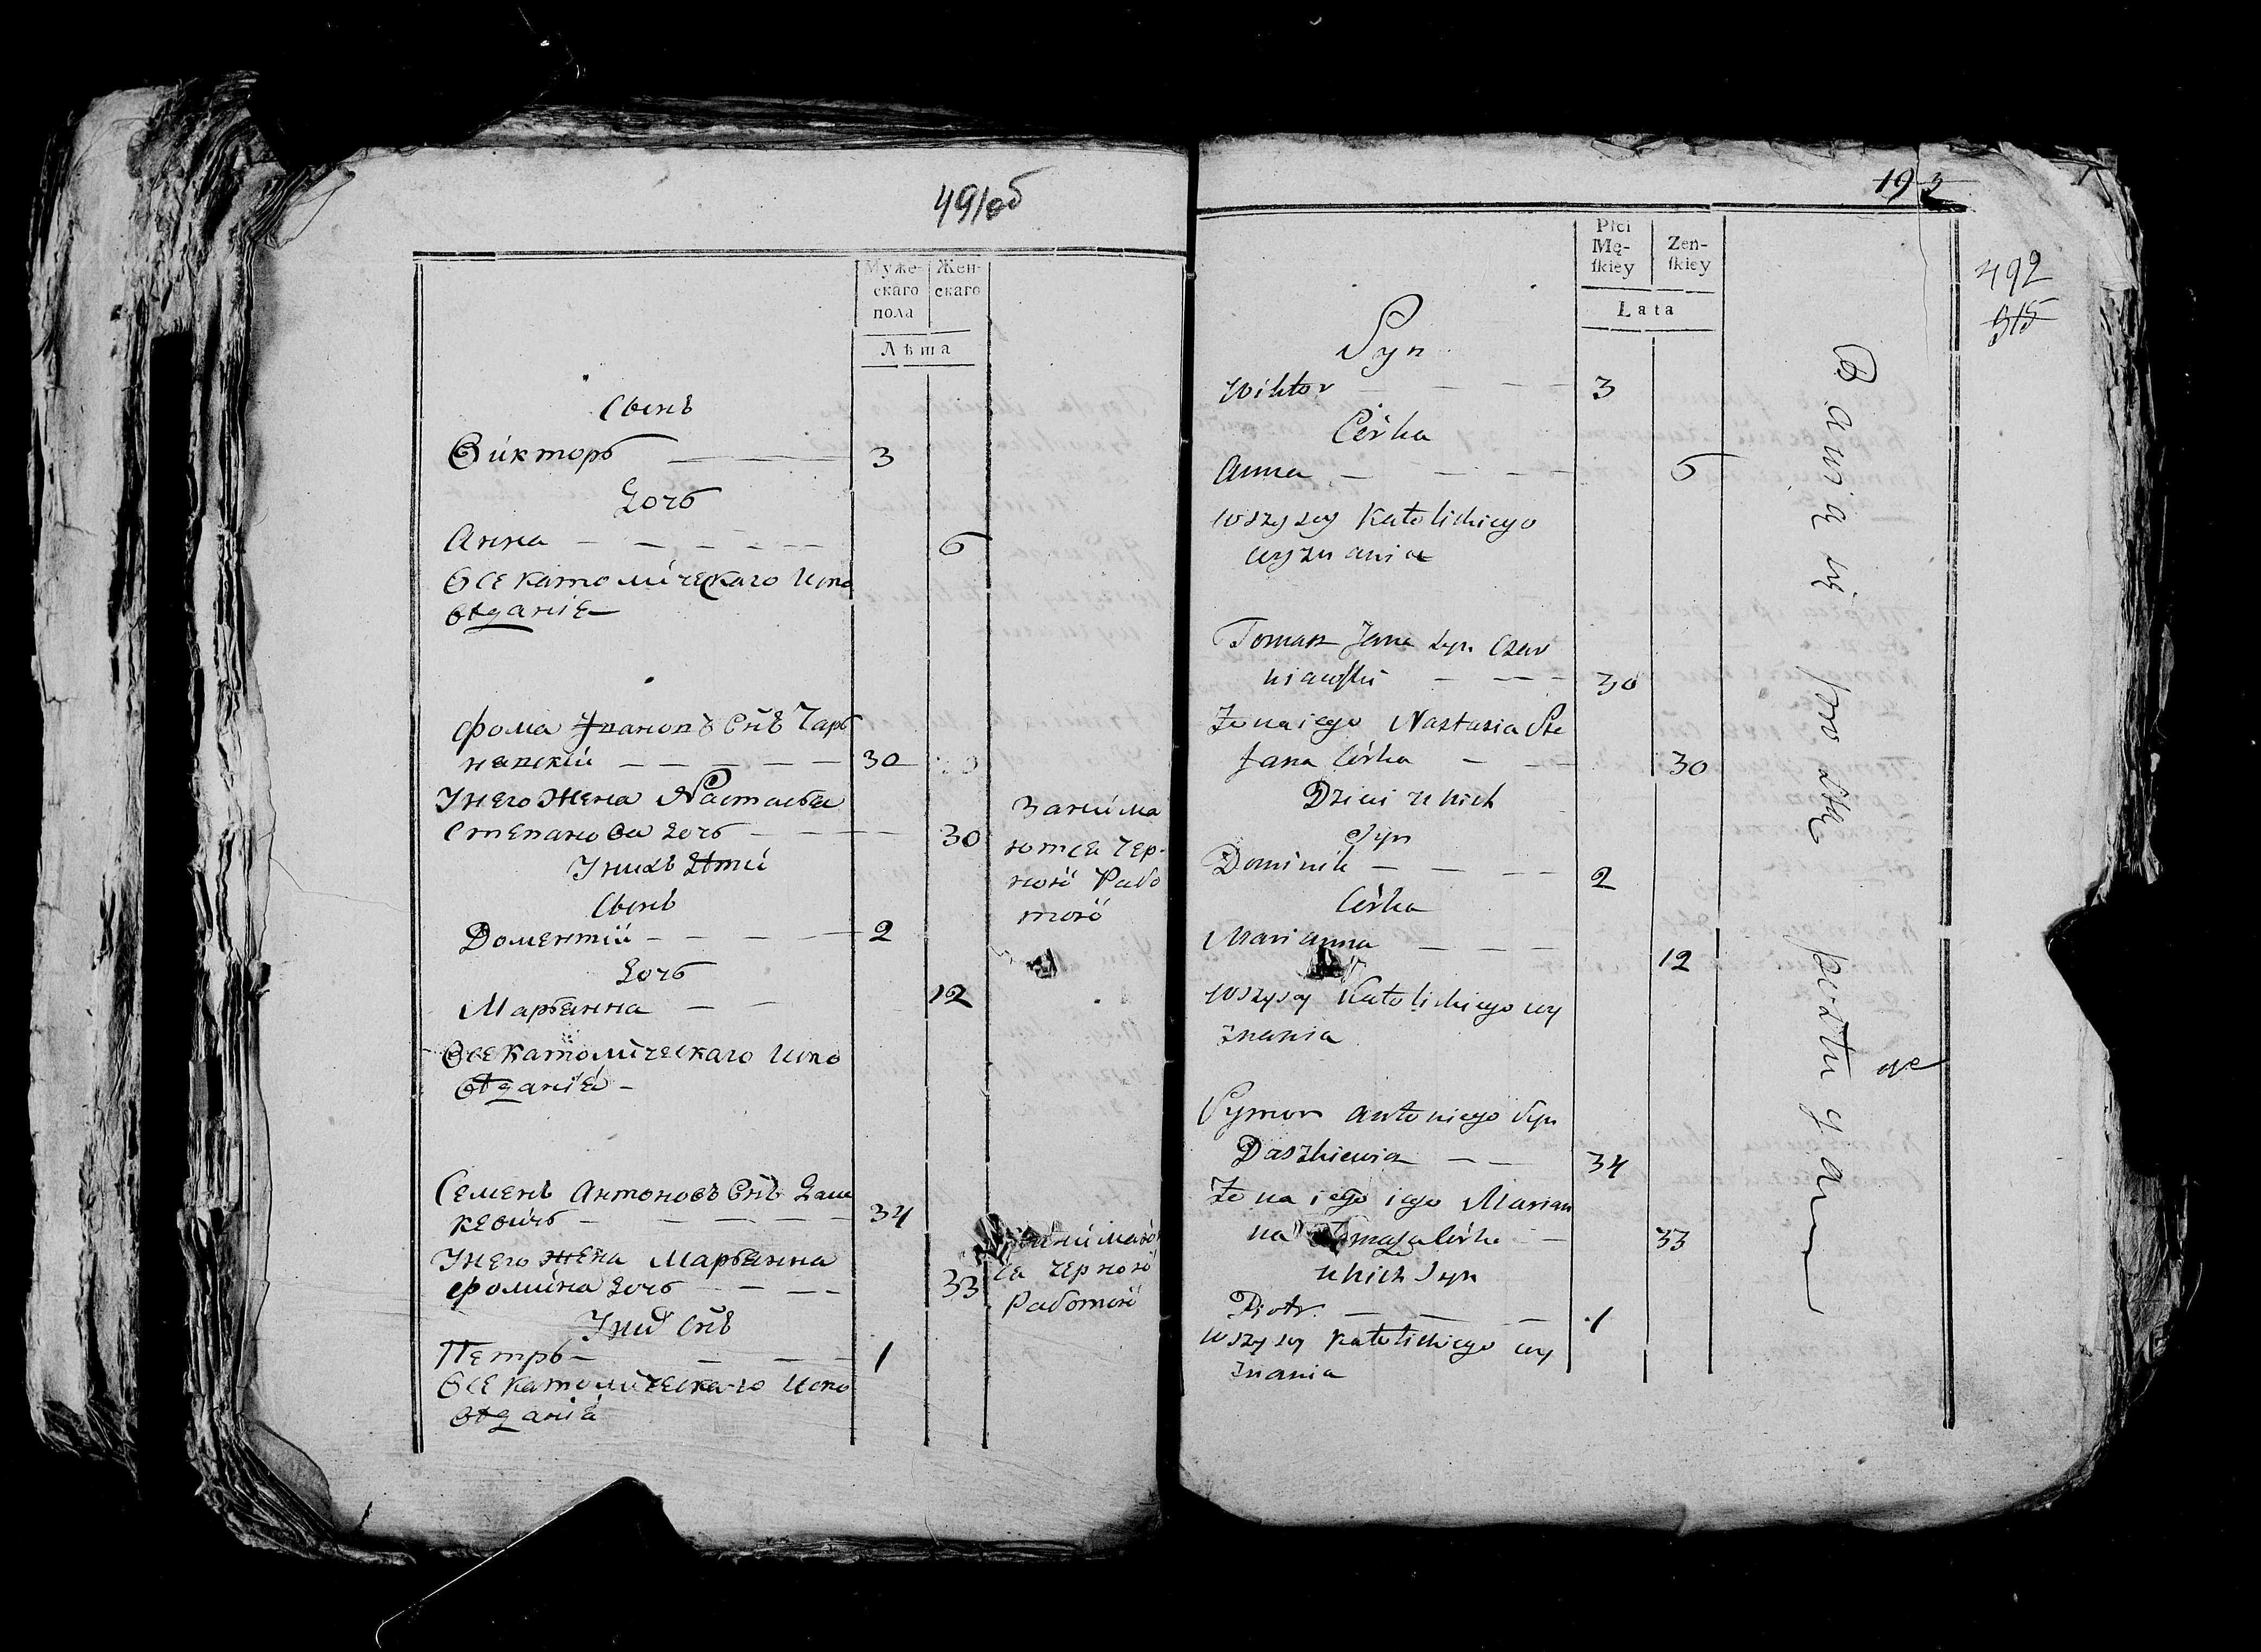 491об
Муже-
скаго
пола
Жен-
скаго
Лѣта
Сынъ
Викторъ 3
Дочь
Анна 6
Все католическаго испо
вѣданіе
Фома Ивановъ Снъ Чарь
невскій 30
У него жена Настасья
Степанова дочь 30
У нихъ дѣти
Сынъ
Доментій 2
Дочь
Марьянна 12
Все католическаго испо
вѣданія
Занима
ются чер-
ною рабо
тою
Семенъ Антоновъ Снъ Даш
кевичь 34
У него жена Марьянна
Фомина дочь 33
У них снъ
Петръ 1
Все католическаго испо
вѣданія
ся черною
работою
193
492
515
Płci
Mę-
skiey
Żeń-
skiey
Lata
Syn
Wiktor 3
Córka
Anna 6
wszyscy katolickiego
wyznania
Tomasz Jana syn Czar
niawski 30
Żona iego Nastazia Ste
fana Córka 30
Dzieci u nich
Syn
Dominik 2
Córka
Marianna 12
wszyscy katolickiego wy
znania
Symon Antoniego Syn
Daszkiewicz 34
Żona iego iego Marian
na Tomasza Córka 33
u nich Syn
Piotr 1
wszyscy katolickiego wy
znania
Bawią się